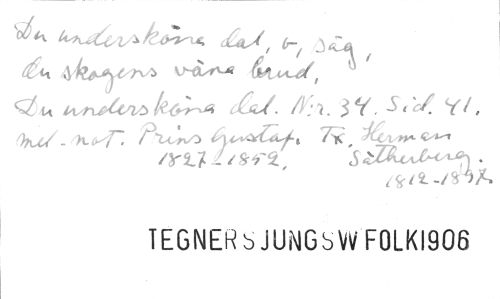 Du undersköna dal, o, säg,
du skogens väna brud,
Du undersköna dal. N:r. 34. Sid. 41.
mel. not. Prins Gustaf. Tx. Herman
1827-1852. Sätherberg.
1812-1897.
TEGNERSJUNGSWFOLK1906